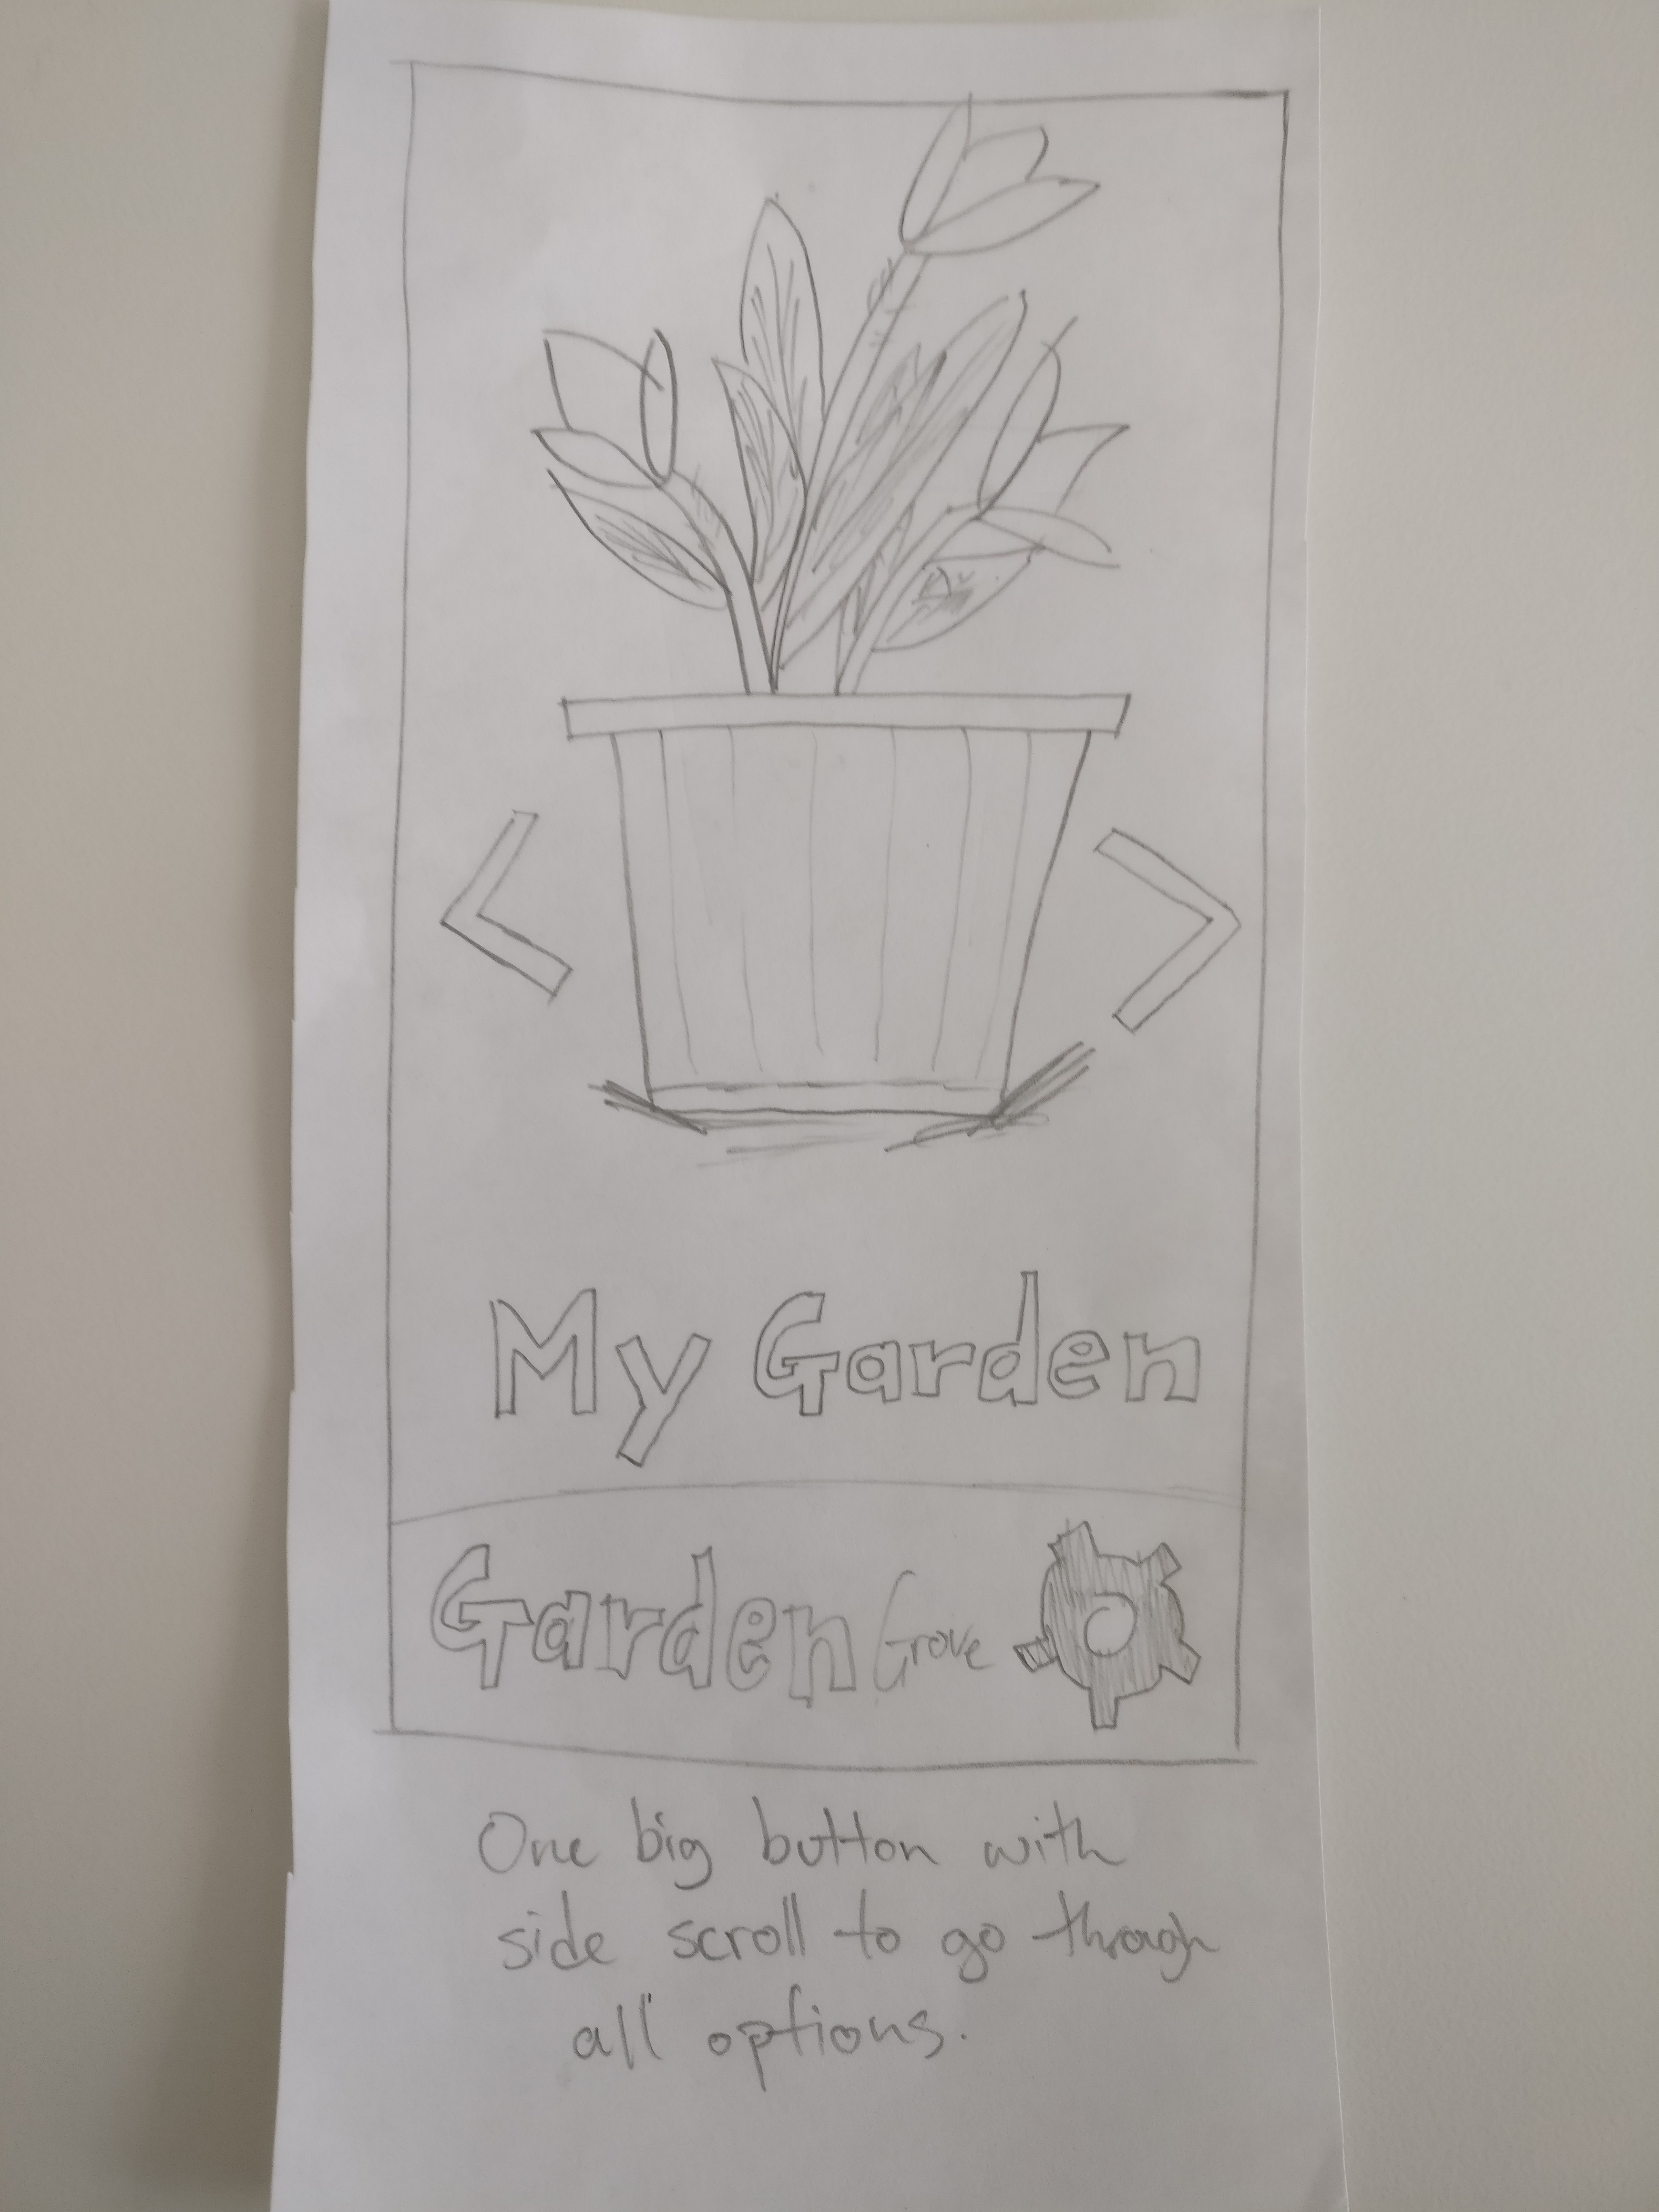 My Garden
Garden Grove
One big button with
side scroll to go through
all options.